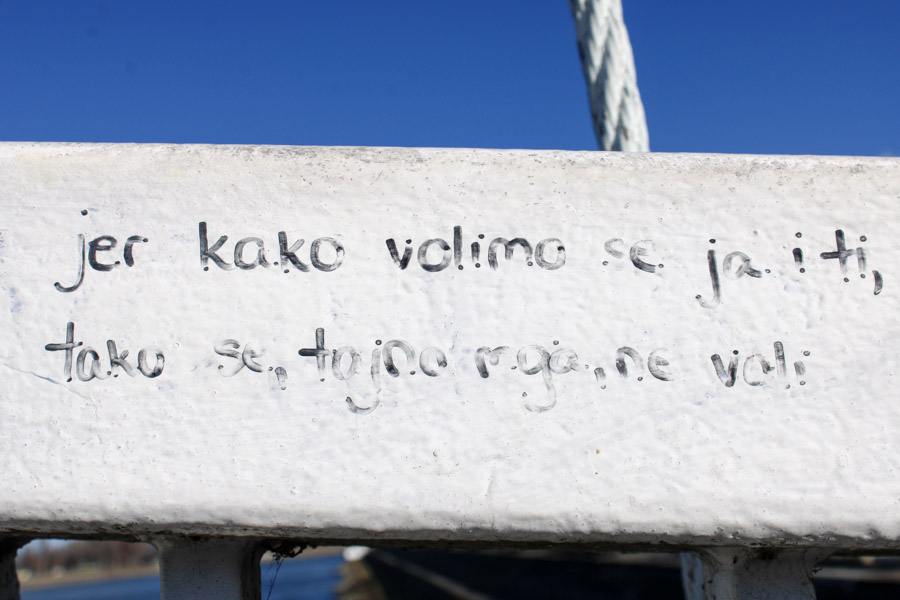 jer kako volimo se ja i ti,
tako se, tajno moja, ne voli